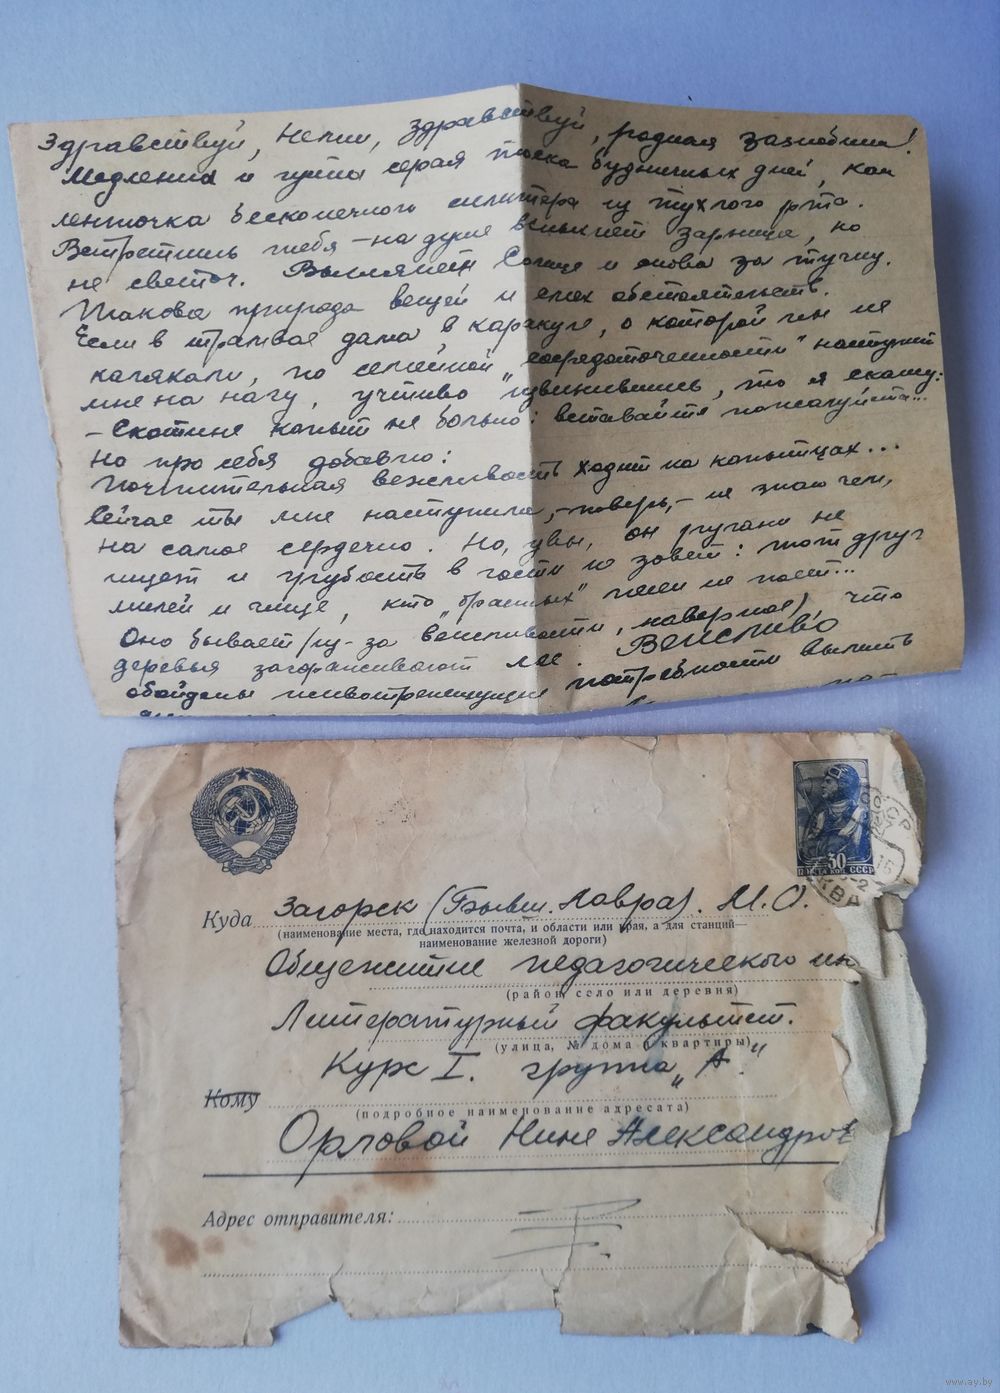 Здравствуй, Нени, здравствуй, родная зазнобина!
Медленна и уныла серая тоска будничных дней, как
ленточка бесконечного из тухлого рта.
Встретишь тебя – на душе вспыхнет зарница, но
не светоч. Выглянет Солнце и снова за тучу.
Такова природа вещей и обстоятельств.
Если в трамвае дама, в каракуле, о которой мы не
калякали, по семейной „сосредоточенности" наступит
мне на ногу, учтиво извинившись, то я скажу:
– Скотине копыт не больно: вставайте пожалуйста...
Но про себя добавлю:
Почтительная вежливость ходит на копытцах...
Сейчас ты мне наступила, – поверь, – не знаю чем,
на самое сердечко. Но, увы, он ругани не
ищет и грубость в гости не зовет: тот друг
милей и чище, кто „бранных" песен не поет...
Оно бывает (из-за вежливости, наверное), что
деревья загораживают лес. Вежливо
обойдены животрепещущие потребности вылить
Куда Загорск (Бывш. Лавра). М.О.
(наименование места, где находится почта, и области или края, а для станций—
наименование железной дороги)
Общежитие педагогического ин
(район, село или деревня)
Литературный факультет.
(улица, № дома и квартиры)
Курс I. группа „А"
Кому
(подробное наименование адресата)
Орловой Нине Александров
Адрес отправителя:
30
ПОЧТА СССР
www.ay.by